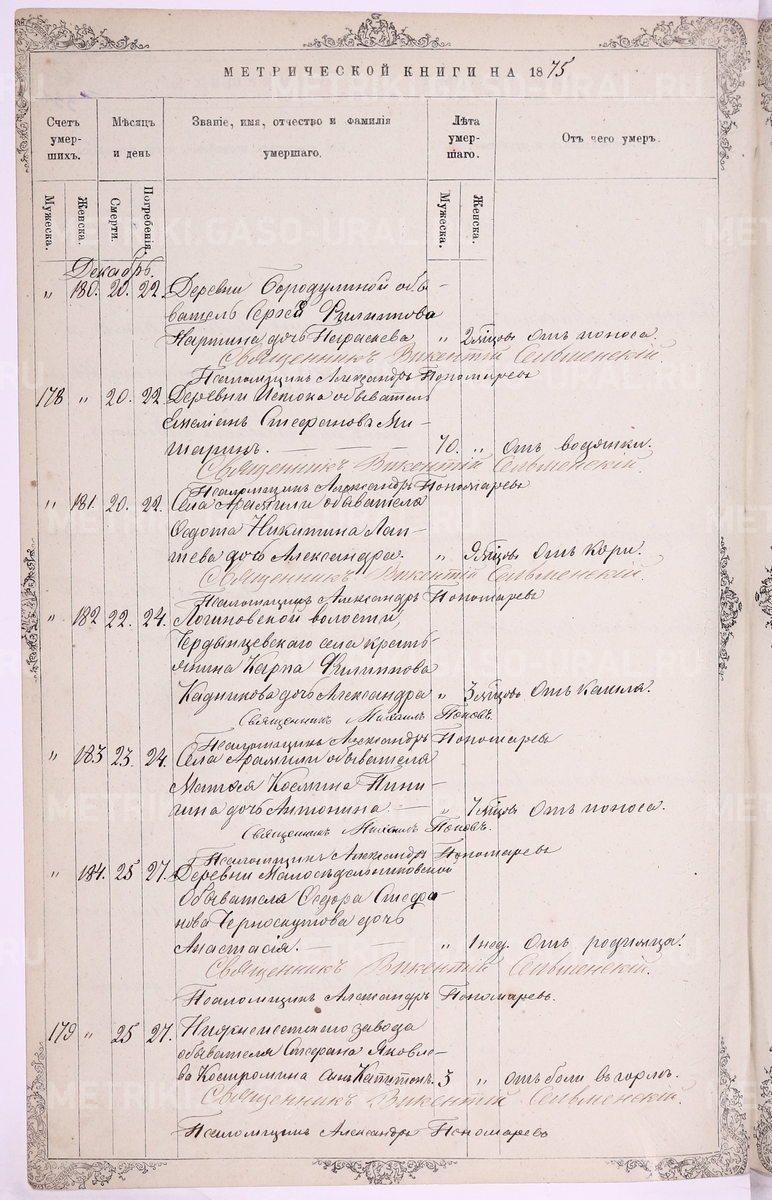 МЕТРИЧЕСКОЙ КНИГИ НА 1875
Счетъ умершихъ. Мѣсяцъ и день Званіе, имя, отчество и фамилія умершаго. Лѣта умершаго. Отъ чего умеръ.
Мужеска. Женска. Смерти. Погребенія. Мужеска. Женска.
Декабрь.
„ 180. 20. 22. Деревни Бородулиной обы-
ватель Сергѣй Филиппова
дочь Параскева „ 2 мѣсцовъ Отъ поноса.
Священникъ Викентій Сельменскій.
Псаломщикъ Александръ Пономаревъ
178 „ 20. 22. Деревни Истока обыватель
Емеліанъ Стефановъ Ми-
шаринъ. 70. „ Отъ водянки.
Священникъ Викентій Сельменскій.
Псаломщикъ Александръ Пономаревъ
„ 181. 20. 22. Села Арамили обывателя
Федота Никитина Лап-
тева дочь Александра. „ 9 мѣсцовъ Отъ Кори.
Священникъ Викентій Сельменскій.
Псаломщикъ Александръ Пономаревъ
„ 182 22. 24. Логиновской волости,
Чердынцевскаго села кресть-
янина Карпа Филиппова
Кадникова дочь Александра „ 3 мѣсцовъ Отъ Кашля.
Священникъ Михаилъ Поповъ.
Псаломщикъ Александръ Пономаревъ
„ 183 23. 24. Села Арамили обывателя
Матѳея Косьмина
дочь Антонина. „ 7 мѣсцовъ Отъ поноса.
Священникъ Михаилъ Поповъ.
Псаломщикъ Александръ Пономаревъ
„ 184. 25 27. Деревни Малосѣдельниковской
Обывателя Ѳедора Стефа-
нова Черноскутова дочь
Анастасія. „ 1 нед. Отъ родимца.
Священникъ Викентій Сельменскій.
Псаломщикъ Александръ Пономаревъ.
179 „ 25 27. Нижнеисетскаго завода
обывателя Стефана Яковле-
ва Костромина сынъ Капитонъ. 5 „ отъ боли въ горлѣ.
Священникъ Викентій Сельменскій.
Псаломщикъ Александръ Пономаревъ